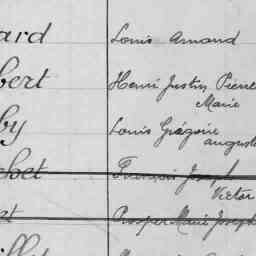 ard Louis Amand
bert Henri Justin Pierre
Marie
by Louis Grégoire
auguste
François Joseph
Victor
et Prosper Marie Joseph